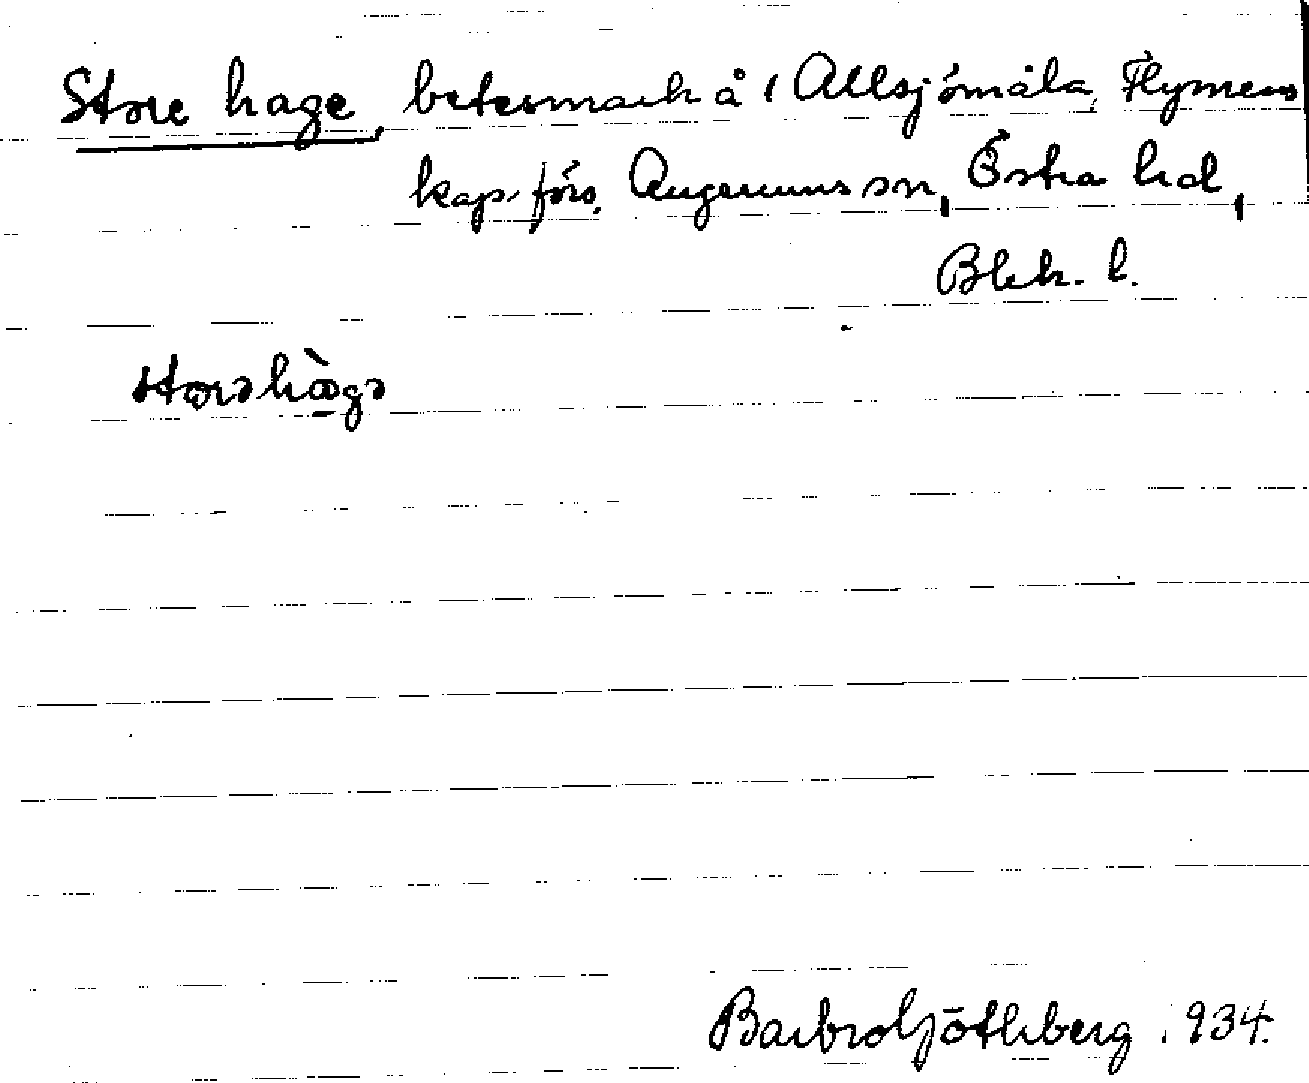 Store hage, betesmark å 1 Allsjömåla, Flymens
kap. förs. Augerums sn, Östra hd,
Blek. l.
storə hàgə
Barbro Götlberg 1934.